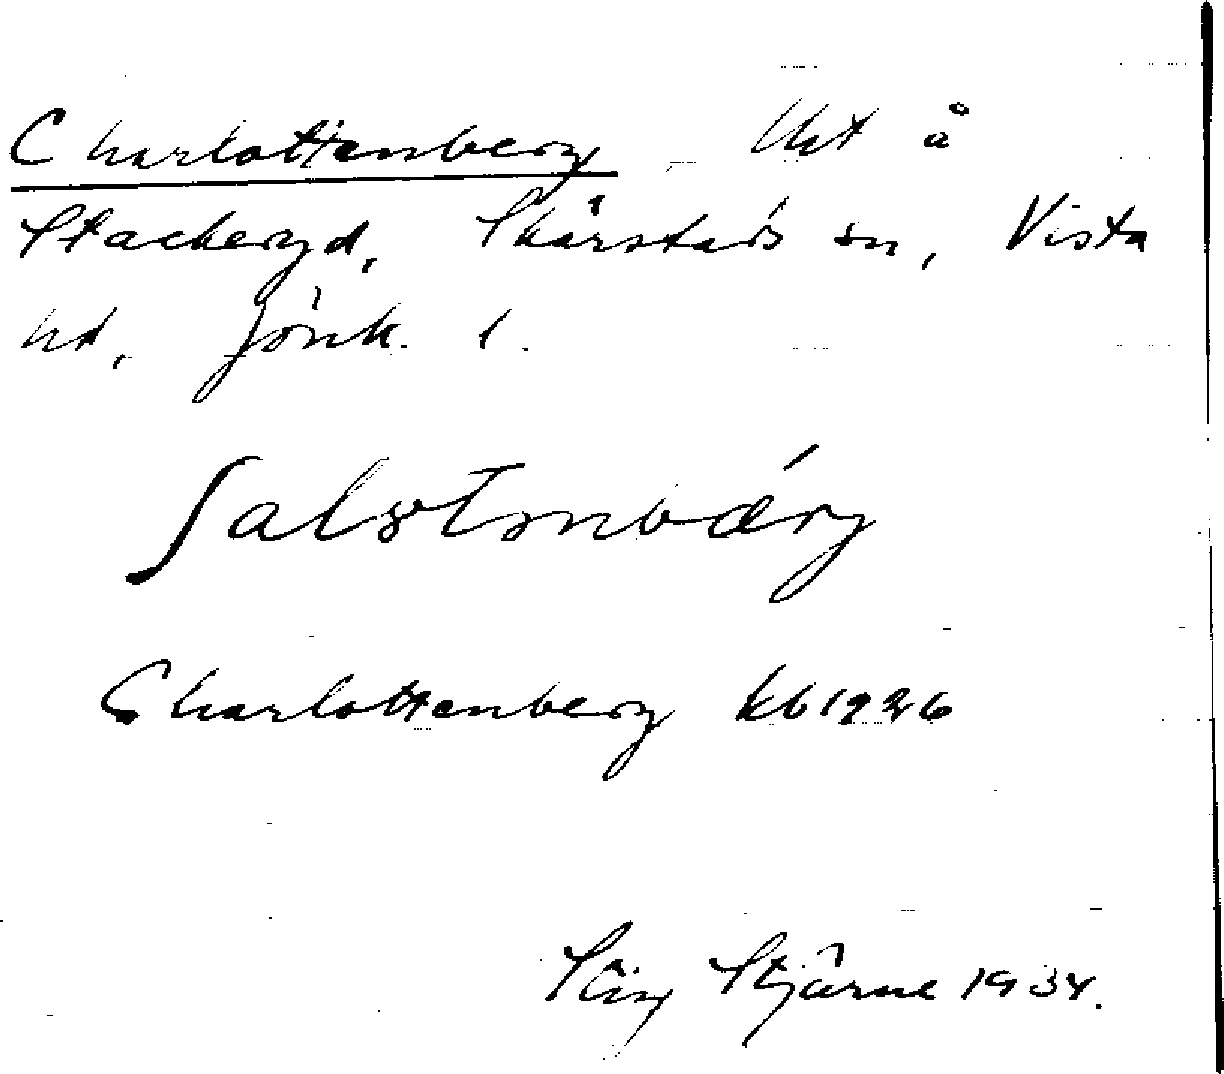 Charlottenberg Uct å
Stackeryd, Skärstads sn, Vista
hd, Jönk. l.
Charlottenberg kb 1926
Stig Stjärne 1934.